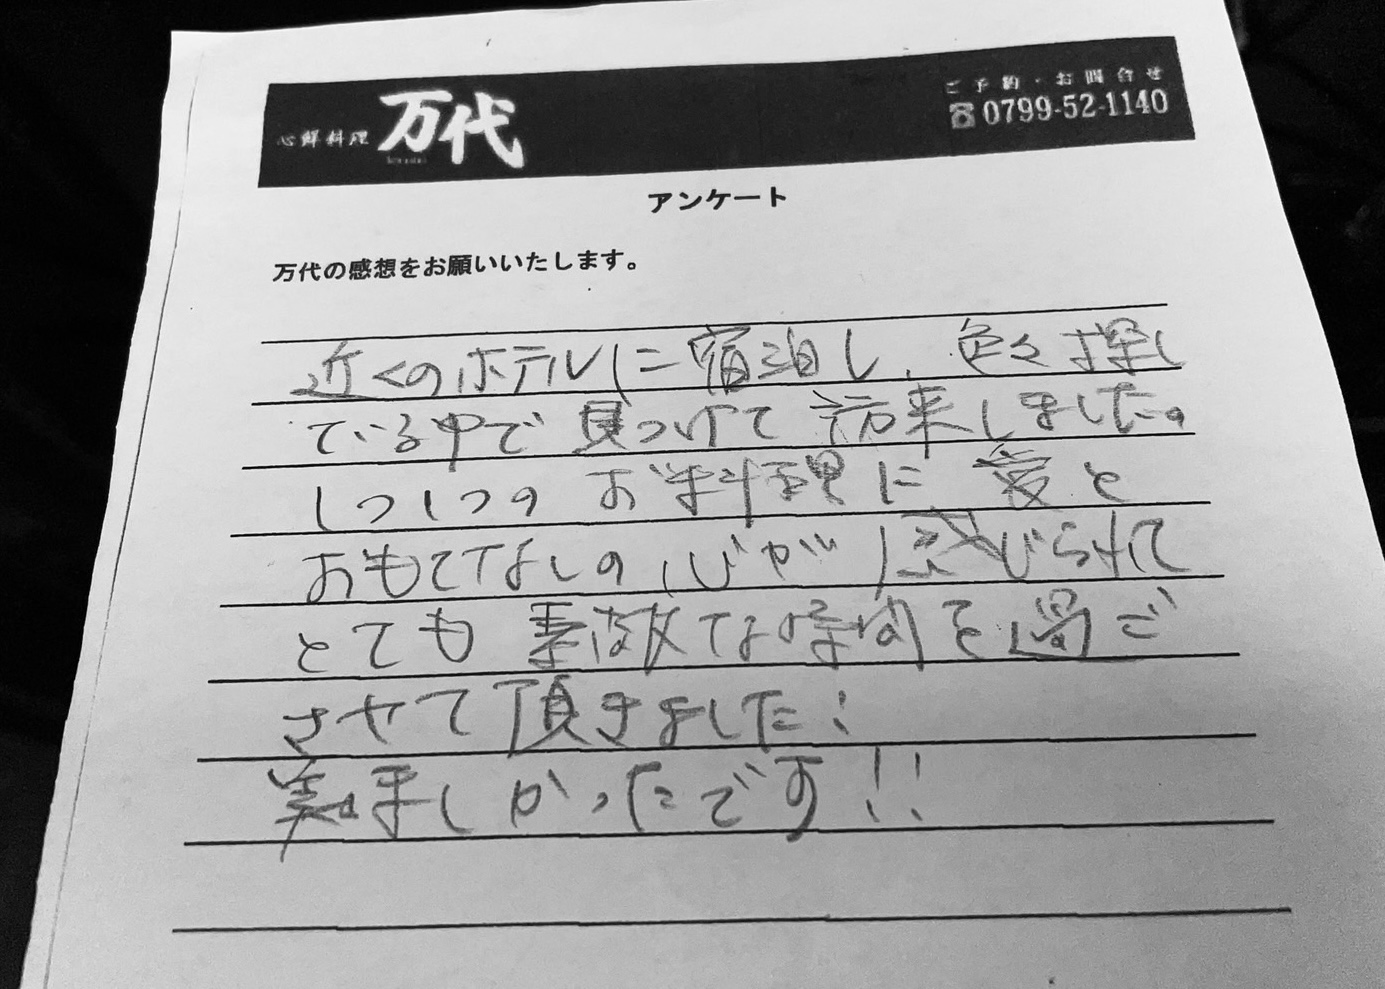 心鮮料理 万代
ご予約・お問合せ
☎0799-52-1140
アンケート
万代の感想をお願いいたします。
近くのホテルに宿泊し、色々探し
ている中で見つけて訪来しました。
1つ1つのお料理に愛と
おもてなしの心が感じられて
とても素敵な時間を過ご
させて頂きました!
美味しかったです!!